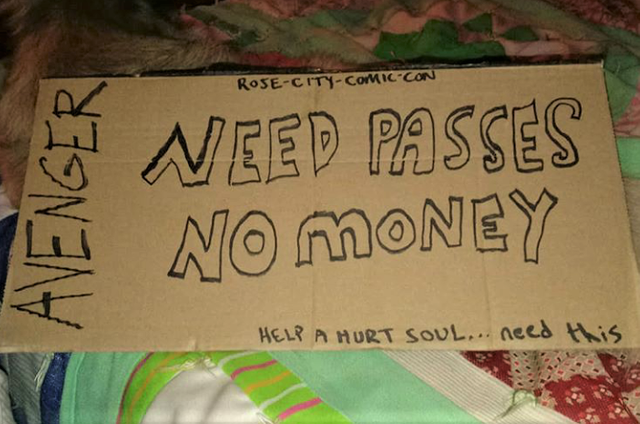 ROSE-CITY-COMIC-CON
AVENGER
NEED PASSES
NO MONEY
HELP A HURT SOUL... need this